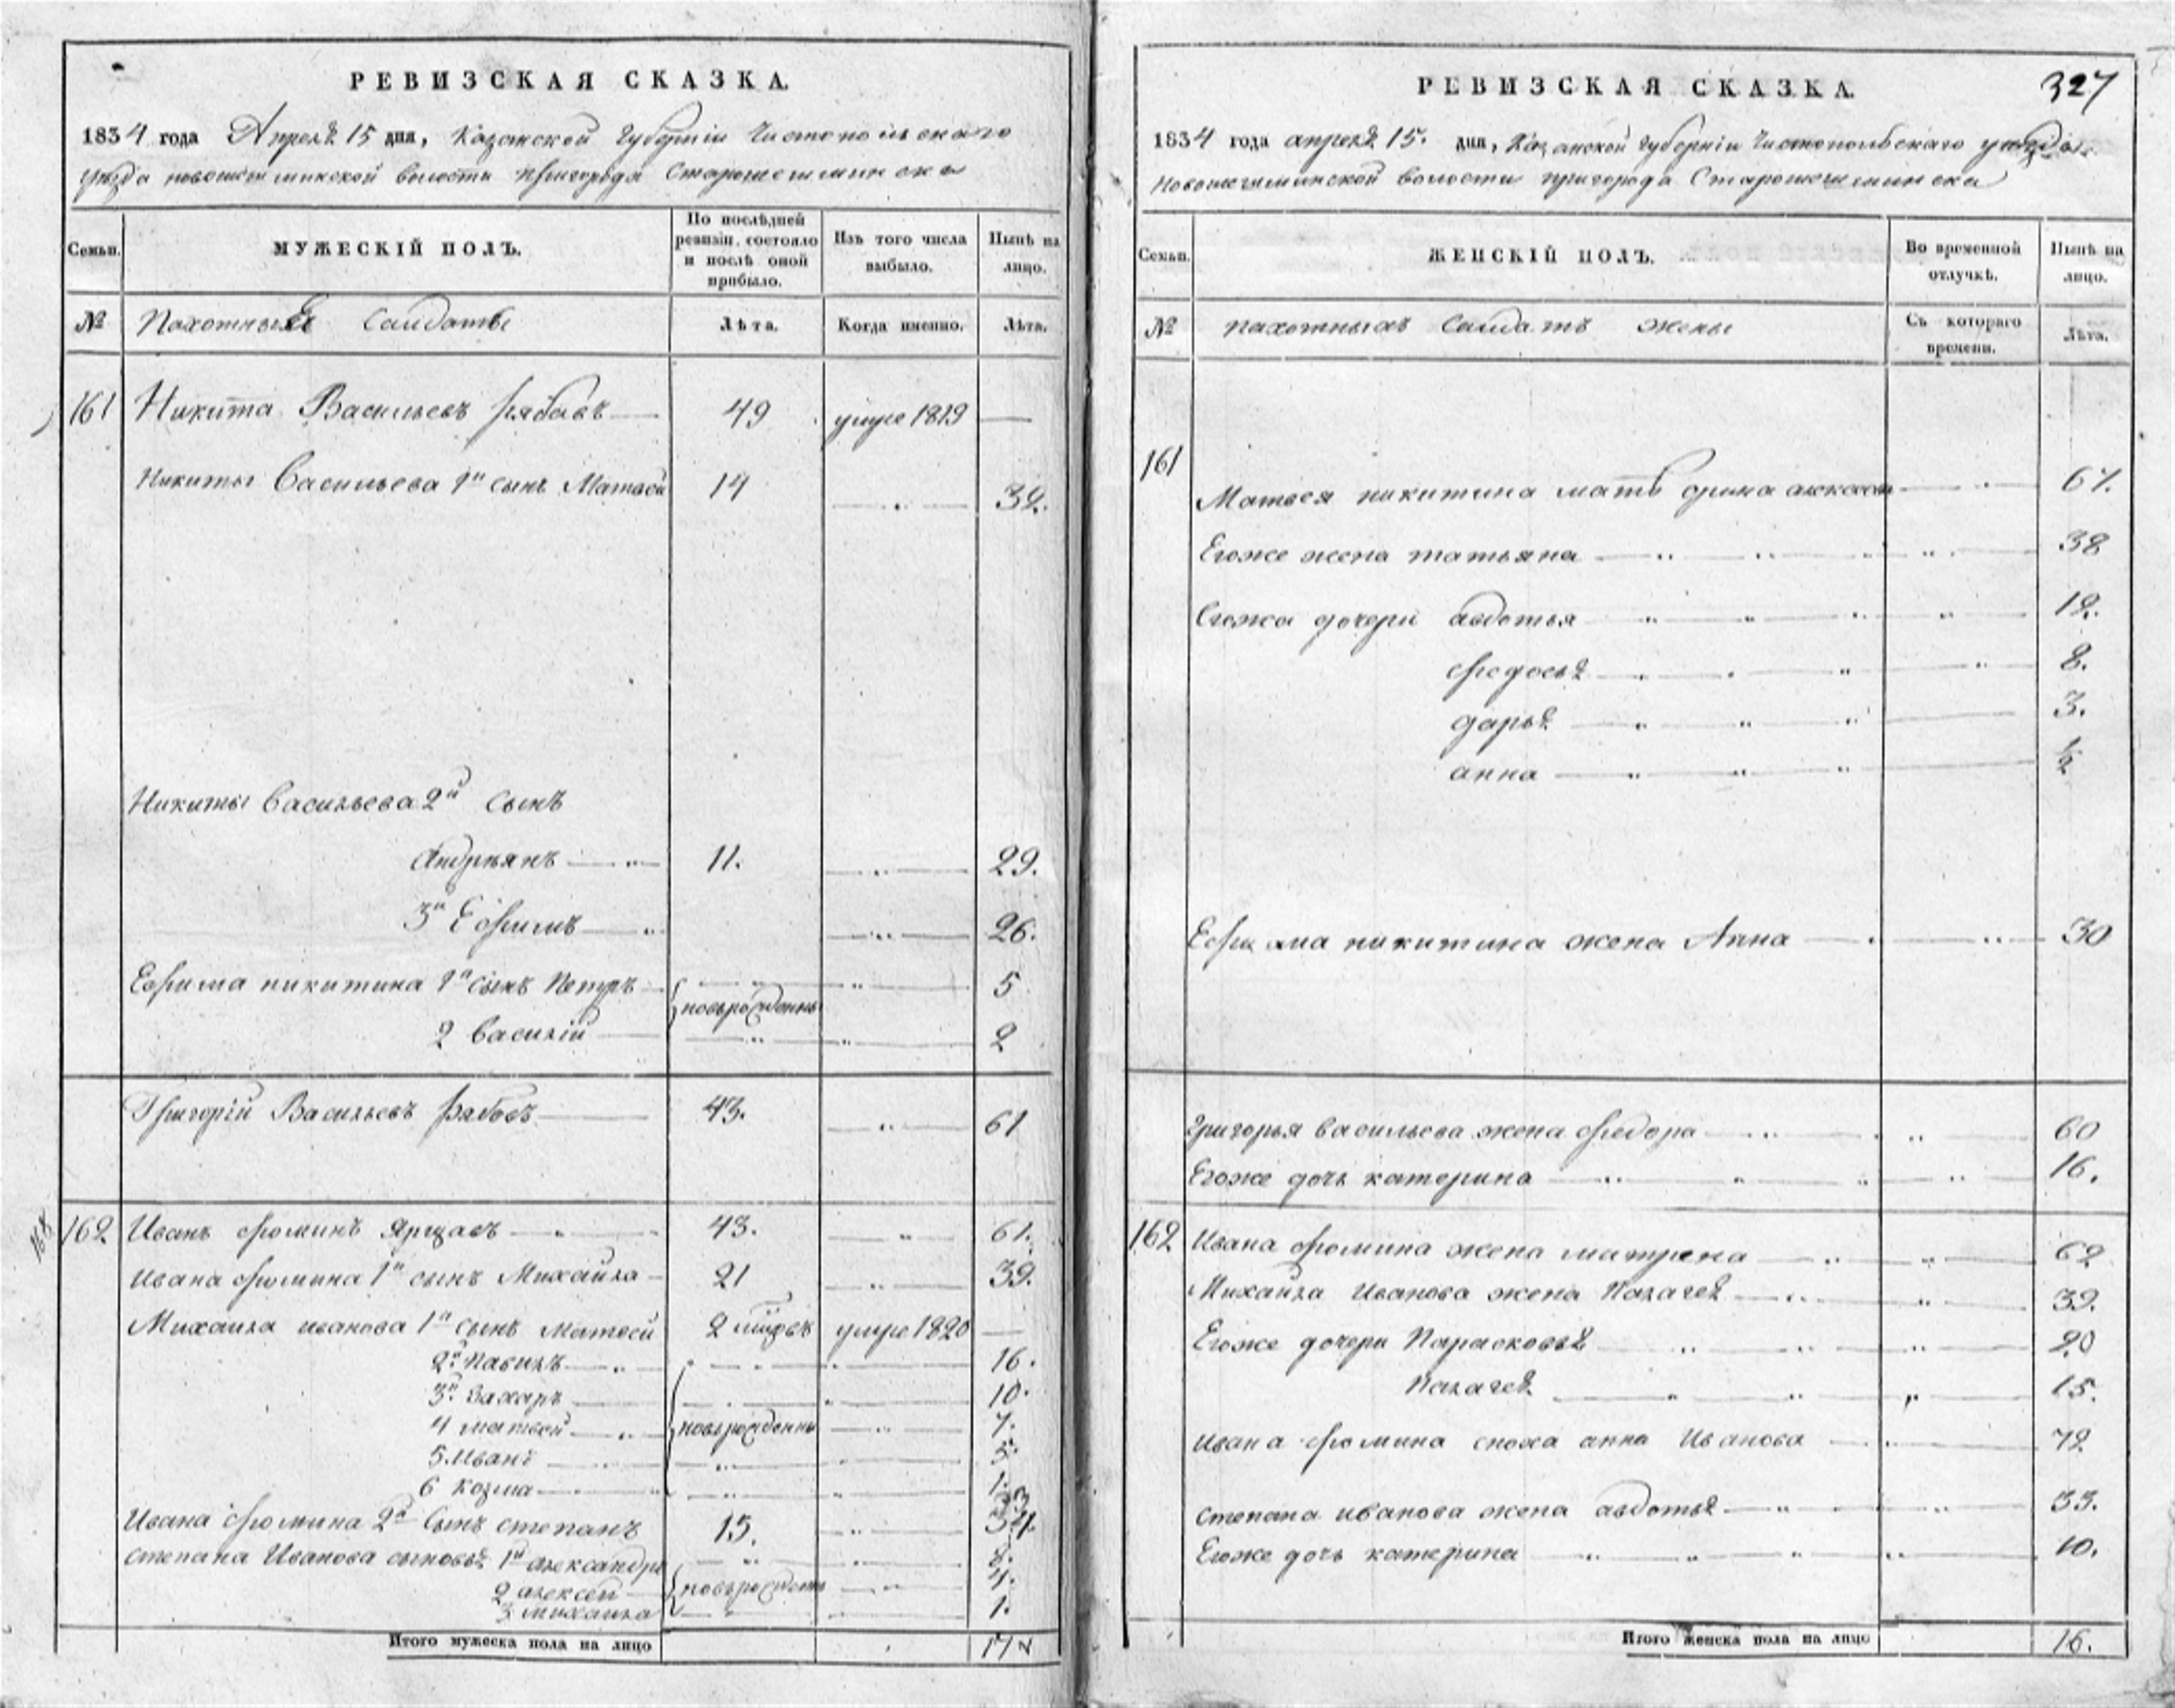 РЕВИЗСКАЯ СКАЗКА.
1834 года Апреля 15 дня, Казанской Губернiи Чистопольскаго
уезда новошешминской волости пригорода Старошешминска
Семьи.
МУЖЕСКIЙ ПОЛЪ.
По послѣдней ревизiи состояло и послѣ оной прибыло.
Изъ того числа выбыло.
Нынѣ на лицо.
№ Пахотные Солдаты
Лѣта.
Когда именно.
Лѣта.
161 Никита Васильевъ Рябовъ 49 умре 1819
Никиты Васильева 1й сынъ Матвей 14 32.
Никиты Васильева 2й сынъ
Андриянъ 11. 29.
3й Ефимъ 26.
Ефима никитина 1й сынъ Петръ 5
новорожденны
2 Василiй 2
Григорiй Васильевъ Рябовъ 43. 61
162 Иванъ фоминъ 43. 61.
Ивана фомина 1й сынъ Михайла 21 39.
Михаила иванова 1й сынъ матвей 2 умре 1820
2й 16.
3й Захаръ 10.
4 матвей новорожденны 7.
5. Иванъ 5.
6 Козма 1.
Ивана фомина 2й сынъ степанъ 15. 34
степана Иванова сыновья 1й александръ 8.
2 алексей 4.
3 михаила 1.
Итого мужеска пола на лицо 17
РЕВИЗСКАЯ СКАЗКА.
327
1834 года апреля 15. дня, Казанской губернiи Чистопольскаго уезда
Новошешминской волости пригорода Старошешминска
Семьи.
ЖЕНСКIЙ ПОЛЪ.
Во временной отлучкѣ.
Нынѣ на лицо.
№ пахотныхъ солдатъ жены
Съ котораго времени.
Лѣта.
161
Матвея никитина мать 67.
Егоже жена татьяна 38
Егоже дочери авдотья 12.
федосья 8.
дарья 3.
анна 1/2
Ефима никитина жена Анна 30
Григорья васильева жена федора 60
Егоже дочь катерина 16.
162 Ивана фомина жена матрена 62
Михайла Иванова жена Палагея 39.
Егоже дочери Парасковья 20
Палагея 15.
Ивана фомина сноха анна Иванова 42
степана иванова жена авдотья 33.
Егоже дочь катерина 10.
Итого женска пола на лицо 16.